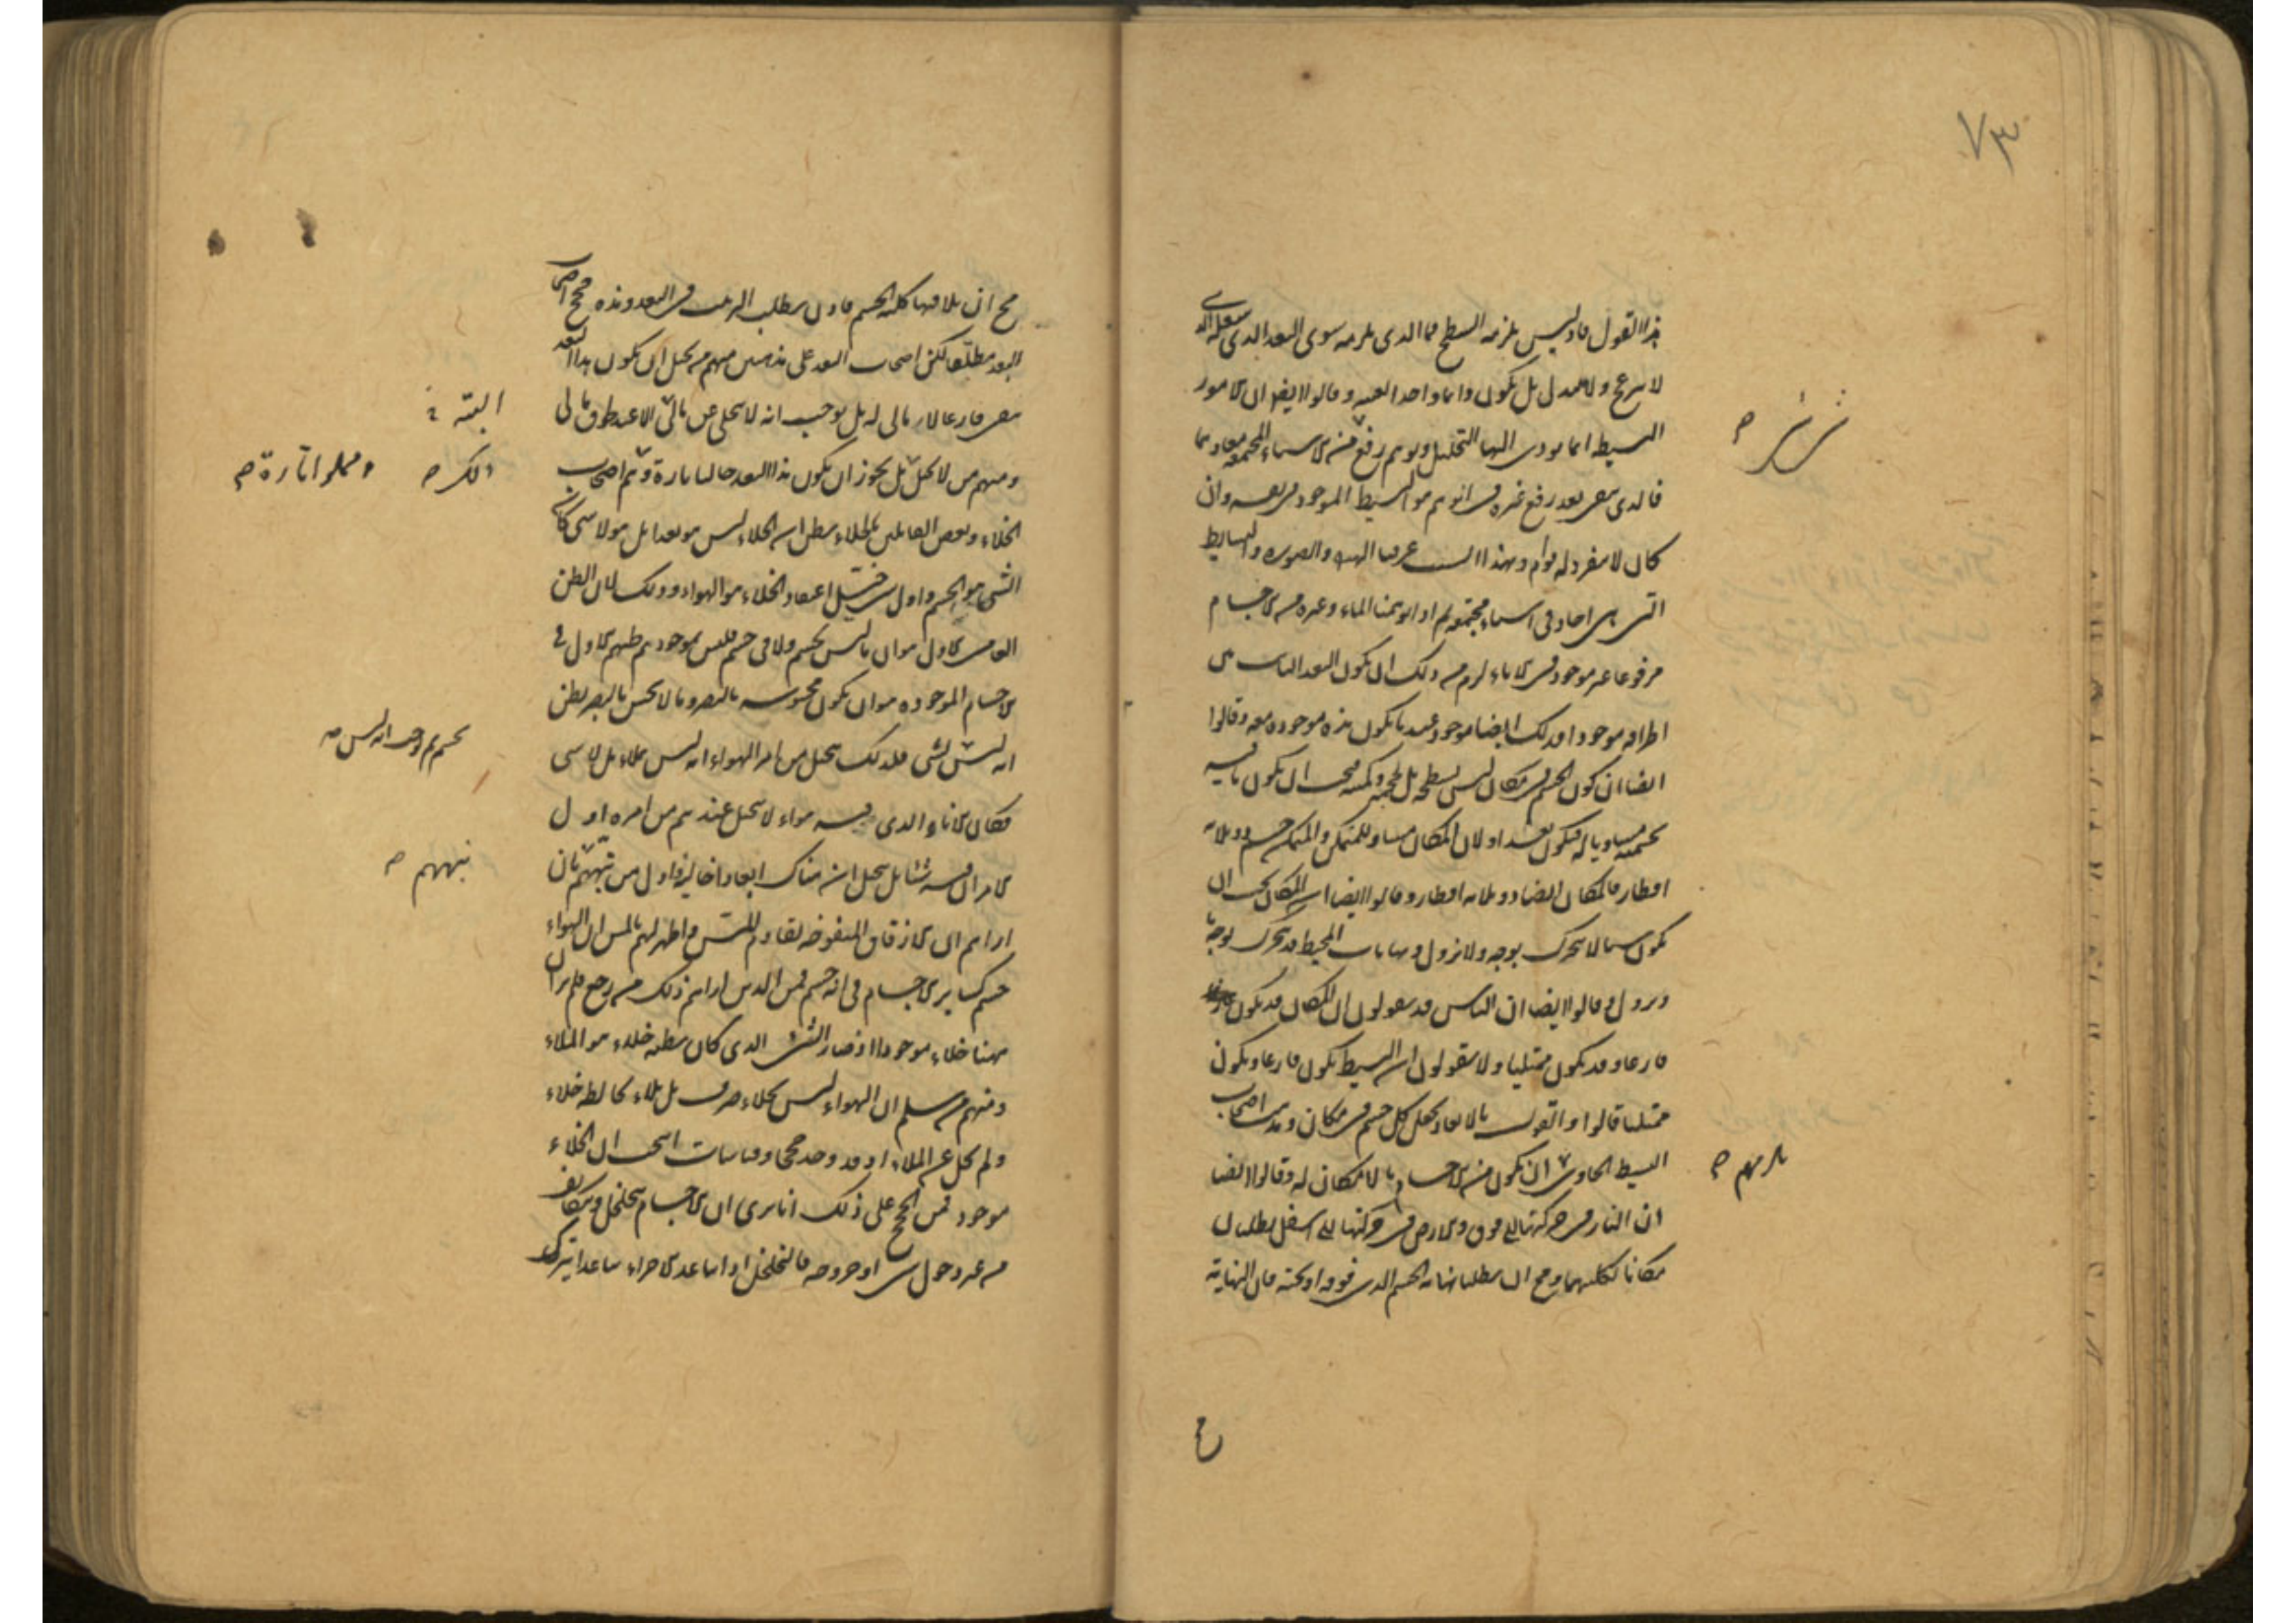 ٧٣
هذا القول فاذ ليس يلزمه السطح فما الذي يلزمه سوى البعد الذي شغله الذي
لا ينزعج ولا يتبدل بل يكون دائما واحدا بعينه وقالوا ايضا ان الامور
البسيطة انما يودى اليها التحليل وتوهم رفع شي شي من الاشياء المجتمعة معا وهما
فالذي يبقى بعد رفع غيره في الوهم هو البسيط الموجود في نفسه وان
كان لا ينفرد له قوام وبهذا السبب عرفنا الهيولى والصورة والبسايط
التي هي احاد في اشياء مجتمعة ثم اذا توهمنا الماء وغيره من الاجسام
مرفوعا غير موجود في الاناء لزم من ذلك ان يكون البعد الثابت بين
اطرافه موجودا وذلك ايضا موجود عندما يكون هذه موجودة معه وقالوا
ايضا ان كون الجسم في مكان ليس بسطحه بل بحجمه وكميته فيجب ان يكون ما فيه
بجسميته مساويا له فيكون بعدا ولان المكان مساو للمتمكن والمتمكن جسم ذو ثلاثة
اقطار فالمكان ايضا ذو ثلاثة اقطار وقالوا ايضا ان المكان يجب ان
يكون شيئا لا يتحرك بوجه ولا يزول ونهايات المحيط قد تتحرك بوجه ما
وتزول وقالوا ايضا ان الناس قد يقولون ان المكان قد يكون
فارغا وقد يكون ممتليا ولا يقولون ان البسيط يكون فارغا ويكون
ممتليا قالوا والقول بالابعاد يجعل كل جسم في مكان ومذهب اصحاب
البسيط الحاوي ان يكون من الاجسام ما لا مكان له وقالوا ايضا
يلزمهم ص
ان النار في حركتها الى فوق والارض في حركتها الى اسفل يطلبان
مكانا لكليتهما ومح ان يطلبا نهاية الجسم الذي فوقه او تحته فان النهاية
مح ان يلاقيها كلية الجسم فاذن يطلب الترتيب في البعد وهذه حجج اصحاب
البعد مطلقا لكن اصحاب البعد على مذهبين منهم من يحيل ان يكون هذا البعد
يبقى فارغا لا مالئ له بل يوجب انه لا يتخلى عن مالئ الا عند طروق مالئ
البتة
ومنهم من لا يحيل ذلك بل يجوز ان يكون هذا البعد خاليا تارة وهم اصحاب
ذلك ص
ومملوا تارة ص
الخلاء وبعض القائلين بالخلاء يظن ان الخلاء ليس هو بعدا بل هو لا شي كان
الشي هو الجسم واول شي خيّل اعتقاد الخلاء هو الهواء وذلك لان الظن
العامي الاول هو ان ما ليس بجسم ولا في جسم فليس بموجود ثم ظنهم الاول في
الاجسام الموجودة هو ان يكون محسوسة بالبصر وما لا يحس بالبصر يظن
انه ليس بشي فلذلك يتخيل من امر الهواء انه ليس ملاء بل لا شي
بجسم ثم يوجب انه ليس ص
فكان الاناء الذي فيه هواء لا يتخيل عندهم من امره اول
الامر ان فيه شيئا بل يتخيل ان هناك ابعادا خالية فاول من نبههم بان
نبههم ص
اراهم ان الازقاق المنفوخة تقاوم اللمس واظهر لهم باللمس ان الهواء
جسم كساير الاجسام في انه جسم فمن الذين اراهم ذلك من رجع فلم ير ان
ههنا خلاء موجودا اذ صار الشي الذي كان يظنه خلاء هو الملاء
ومنهم من سلم ان الهواء ليس بخلاء صرف بل ملاء يخالطه خلاء
ولم يخل عن الملاء اذ قد وجد حججا وقياسات انتجت ان الخلاء
موجود فمن الحجج على ذلك انا نرى ان الاجسام تتخلخل وتتكاثف
من غير دخول شي او خروجه فالتخلخل اذا تباعد الاجزاء تباعدا يترك